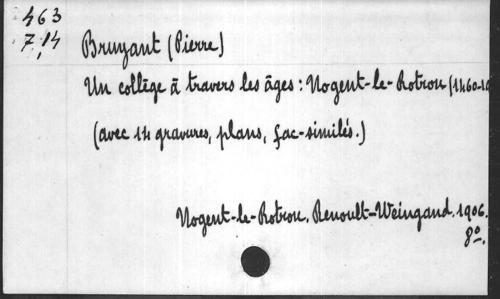 463
7,14
Bruyant (Pierre)
Un collège à travers les âges : Nogent-le-Rotrou (1460-
(avec 14 gravures, plans, fac-similés.)
Nogent-le-Rotrou. Renoult-Weingand. 1906.
8º.